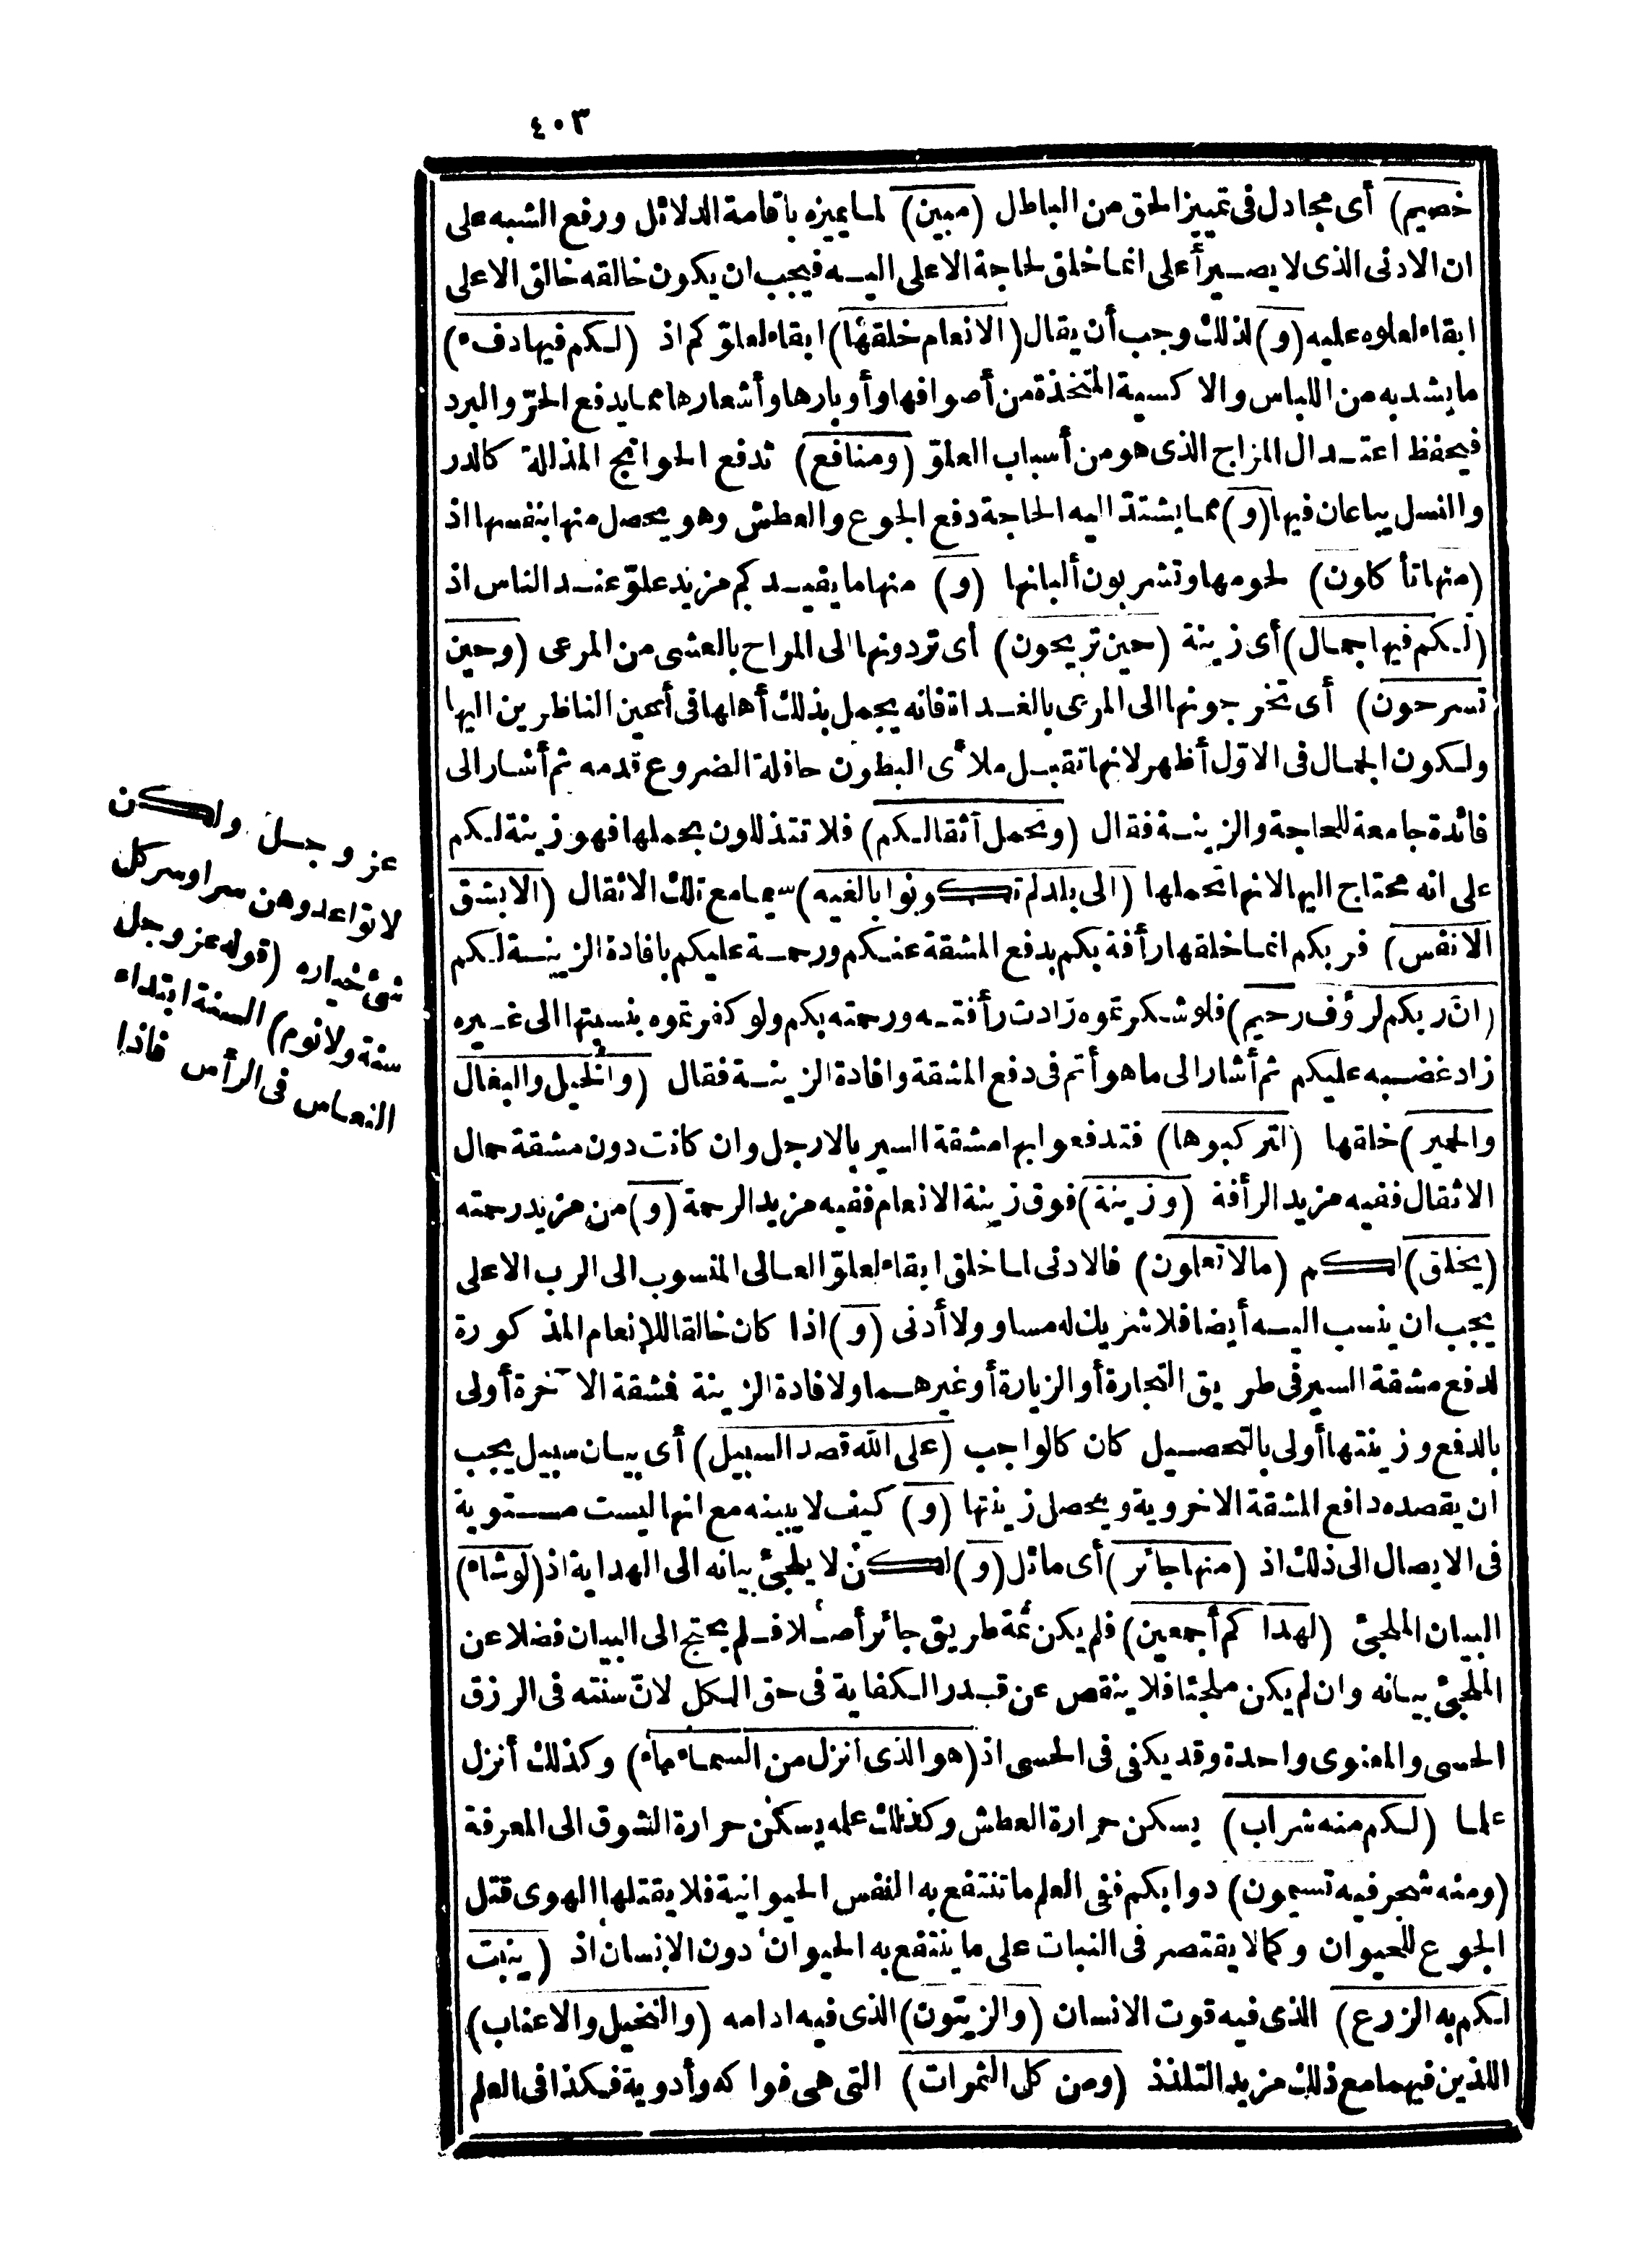 ٤٠٣
خصيم) أى مجادل فى تمييز الحق من الباطل (مبين) لما يميزه باقامة الدلائل ورفع الشبه على
ان الادنى الذى لا يصير أعلى انما خلق لحاجة الاعلى اليه فيجب ان يكون خالقه خالق الاعلى
ابقاء لعلوه عليه (و) لذلك وجب أن يقال (الانعام خلقها) ابقاء لعلوّكم اذ (لكم فيها دفء)
ما يشد به من اللباس والاكسية المتخذة من أصوافها وأوبارها وأشعارها مما يدفع الحرّ والبرد
فيحفظ اعتدال المزاج الذى هو من أسباب العلوّ (ومنافع) تدفع الحوائج المذالة كالدر
والنسل يباعان فيها (و) مما يشتدّ اليه الحاجة دفع الجوع والعطش وهو يحصل منها بنفسها اذ
(منها تأكلون) لحومها وتشربون ألبانها (و) منها ما يفيدكم مزيد علوّ عند الناس اذ
(لكم فيها جمال) أى زينة (حين تريحون) أى تردونها الى المراح بالعشى من المرعى (وحين
تسرحون) أى تخرجونها الى المرعى بالغداة فانه يجمل بذلك أهلها فى أعين الناظرين اليها
ولكون الجمال فى الاوّل أظهر لانها تقبل ملأى البطون حافلة الضروع قدمه ثم أشار الى
فائدة جامعة للحاجة والزينة فقال (وتحمل أثقالكم) فلا تتذللون بحملها فهو زينة لكم
على انه محتاج اليها لانها تحملها (الى بلد لم تكونوا بالغيه) سيما مع تلك الاثقال (الا بشق
الانفس) فربكم انما خلقها رأفة بكم بدفع المشقة عنكم ورحمة عليكم بافادة الزينة لكم
(انّ ربكم لرؤف رحيم) فلو شكرتموه زادت رأفته ورحمته بكم ولو كفرتموه بنسبتها الى غيره
زاد غضبه عليكم ثم أشار الى ما هو أتم فى دفع المشقة وافادة الزينة فقال (والخيل والبغال
والحمير) خلقها (لتركبوها) فتدفعوا بها مشقة السير بالارجل وان كانت دون مشقة حمال
الاثقال ففيه مزيد الرأفة (وزينة) فوق زينة الانعام ففيه مزيد الرحمة (و) من مزيد رحمته
(يخلق) لكم (ما لا تعلمون) فالادنى لما خلق ابقاء لعلوّ العالى المنسوب الى الرب الاعلى
يجب ان ينسب اليه أيضا فلا شريك له مساو ولا أدنى (و) اذا كان خالقا للانعام المذكورة
لدفع مشقة السير فى طريق التجارة أو الزيارة أو غيرهما ولافادة الزينة فمشقة الآخرة أولى
بالدفع وزينتها أولى بالتحصيل كان كالواجب (على الله قصد السبيل) أى بيان سبيل يجب
ان يقصده دافع المشقة الاخروية ويحصل زينتها (و) كيف لا يبينه مع انها ليست مستوية
فى الايصال الى ذلك اذ (منها جائر) أى مائل (و) لكن لا يلجئ بيانه الى الهداية اذ (لو شاء)
البيان الملجئ (لهداكم أجمعين) فلم يكن ثمة طريق جائر أصلا فلم يحتج الى البيان فضلا عن
الملجئ بيانه وان لم يكن ملجئا فلا ينقص عن قدر الكفاية فى حق الكل لانّ سنته فى الرزق
الحسى والمعنوى واحدة وقد يكفى فى الحسى اذ (هو الذى أنزل من السماء ماء) وكذلك أنزل
علما (لكم منه شراب) يسكن حرارة العطش وكذلك علمه يسكن حرارة الشوق الى المعرفة
(ومنه شجر فيه تسيمون) دوابكم ففى العلم ما تنتفع به النفس الحيوانية فلا يقتلها الهوى قتل
الجوع للحيوان وكما لا يقتصر فى النبات على ما ينتفع به الحيوان دون الانسان اذ (ينبت
لكم به الزرع) الذى فيه قوت الانسان (والزيتون) الذى فيه ادامه (والنخيل والاعناب)
اللذين فيهما مع ذلك مزيد التلذذ (ومن كل الثمرات) التى هى فواكه وأدوية فكذا فى العلم
عز وجل ولكن
لا تواعدوهن سرا وسر كل
شئ خياره (قوله عز وجل
سنة ولا نوم) السنة ابتداء
النعاس فى الرأس فاذا